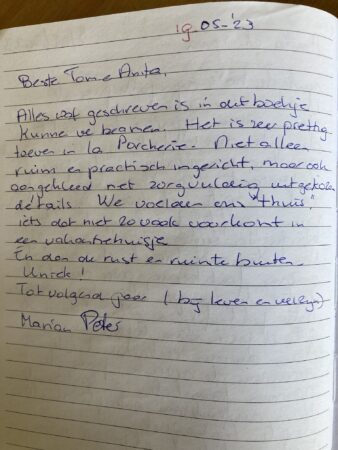 19-05-'23
Beste Tom e Anita,
Alles wat geschreven is in dit boekje
kunne we beamen. Het is zeer prettig
toeven in la Porcherie. Niet alleen
ruim en practisch ingericht, maar ook
aangekleed met zorgvuldig uitgekozen
details. We voelden ons "thuis",
iets dat niet zo vaak voorkomt in
een vakantiehuisje
En dan de rust en ruimte buiten.
Uniek!
Tot volgend jaar (bij leven en welzijn)
Marian Peter